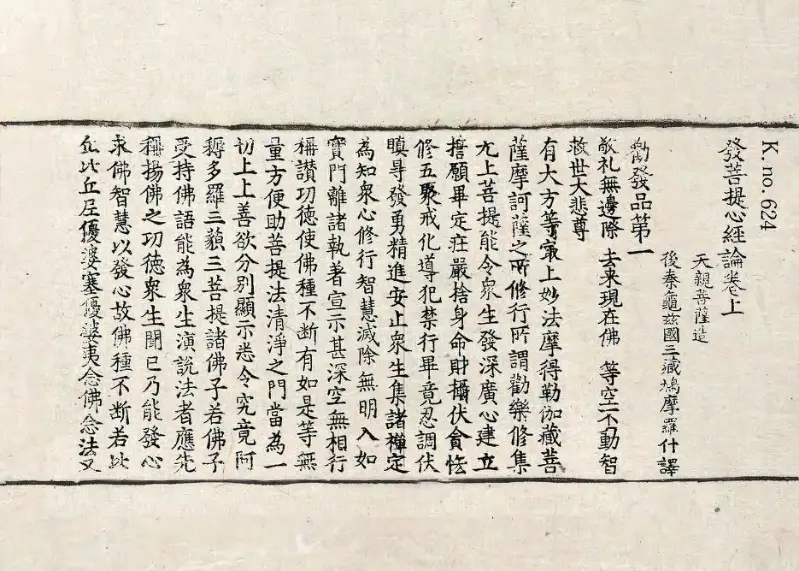 K. no. 624
發菩提心經論卷上
天親菩薩造
後秦龜兹國三藏鳩摩羅什譯
勸發品第一
敬礼無邊際 去来現在佛 等空不動智
救世大悲尊
有大方等㝡上妙法摩得勒伽藏菩
薩摩訶薩之所修行所謂勸樂修集
无上菩提能令衆生發深廣心建立
擔願畢定莊嚴捨身命財攝伏貪恡
修五聚戒化導犯禁行畢竟忍調伏
瞋㝵發勇精進安止衆生集諸禪定
為知衆心修行智慧滅除無明入如
實門離諸執著宣示甚深空無相行
稱讃功德使佛種不断有如是等無
量方便助菩提法清淨之門當為一
切上上善欲分別顯示悉令究竟阿
耨多羅三藐三菩提諸佛子若佛子
受持佛語能為衆生演說法者應先
稱揚佛之功德衆生聞已乃能發心
求佛智慧以發心故佛種不断若比
丘比丘尼優婆塞優婆夷念佛念法又